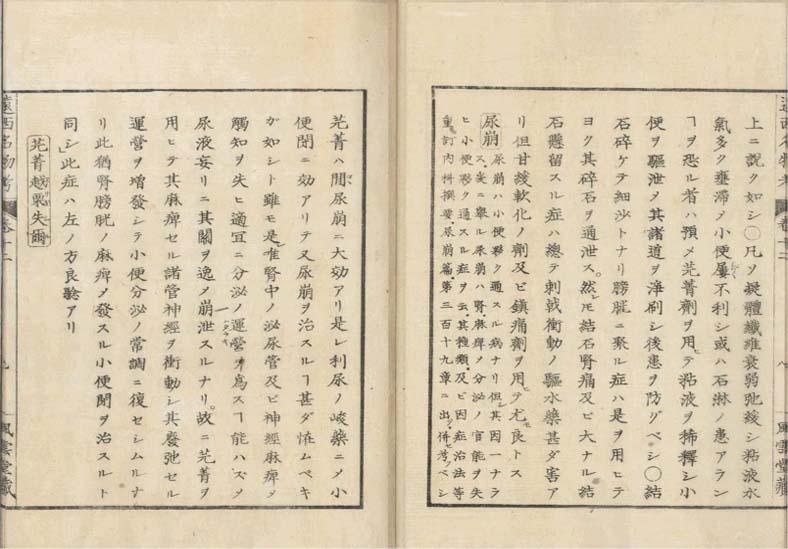 遠西名物考
卷十二
八
風雲堂藏
上ニ説ク如シ〇凡ソ擬體纖維衰弱弛緩シ粘液水
氣多ク壅滯メ小便屢不利シ或ハ石淋ノ患アラン
ヿヲ恐ル者ハ預メ芫菁劑ヲ用テ粘液ヲ稀釋シ小
便ヲ驅泄メ其諸道ヲ淨刷シ後患ヲ防グベシ〇結
石碎ケテ細沙トナリ膀胱ニ聚ル症ハ是ヲ用ヒテ
ヨク其碎石ヲ通泄ス然モ結石腎痛及ビ大ナル結
石懸留スル症ハ總テ刺戟衝動ノ驅水藥甚ダ害ア
リ但甘緩軟化ノ劑及ビ鎮痛劑ヲ用テ尤モ良トス
尿崩
尿崩ハ小便夥ク通スル病ナリ但其因一ナラ
ス玆ニ擧ル尿崩ハ腎麻痺メ分泌ノ官能ヲ失
ヒ小便夥ク通スル症ヲ云其種類及ビ因症治法等
重訂内科撰要尿崩篇第三百十九章ニ出ツ併考ベシ
芫菁ハ間尿崩ニ大効アリ是レ利尿ノ峻藥ニメ小
便閉ニ効アリテ又尿崩ヲ治スルヿ甚ダ怪ムベキ
ガ如シト雖モ是唯腎中ノ泌尿管及ビ神經麻痺メ
觸知ヲ失ヒ適宜ニ分泌ノ運營ヲ爲スヿ能ハズメ
尿液妄リニ其關ヲ逸メ崩泄スルナリ故ニ芫菁ヲ
用ヒテ其麻痺セル諸管神經ヲ衝動シ其廢弛セル
運營ヲ增發シテ小便分泌ノ常調ニ復セシムルナ
リ此猶腎膀胱ノ麻痺メ發スル小便閉ヲ治スルト
同シ此症ハ左ノ方良驗アリ
芫菁越幾失爾
遠西名物考
卷十二
九
風雲堂藏